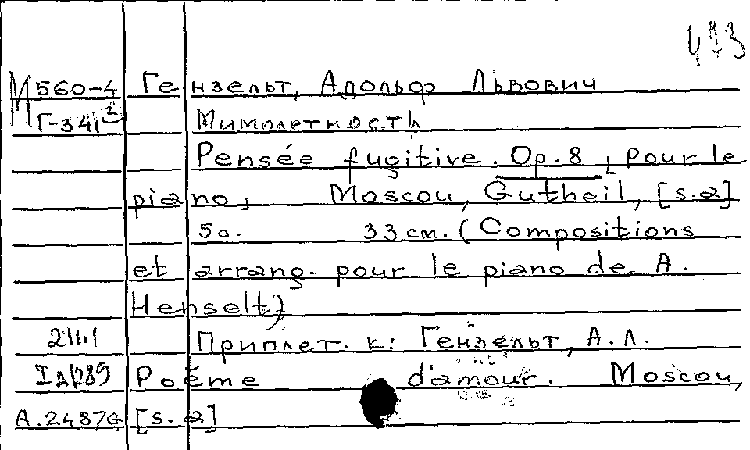 473
М 560-4 Гензельт, Адольф Львович
Г-341 Мимолетность
Pensée fugitive. Op. 8, pour le
piano, Moscou, Gutheil, [s.a]
5с. 33 см. (Compositions
et arrang. pour le piano de A.
Henselt)
Приплет. к: Гензельт, А.Л.
Poéme d'amour. Moscou,
А.2487а [s.a]